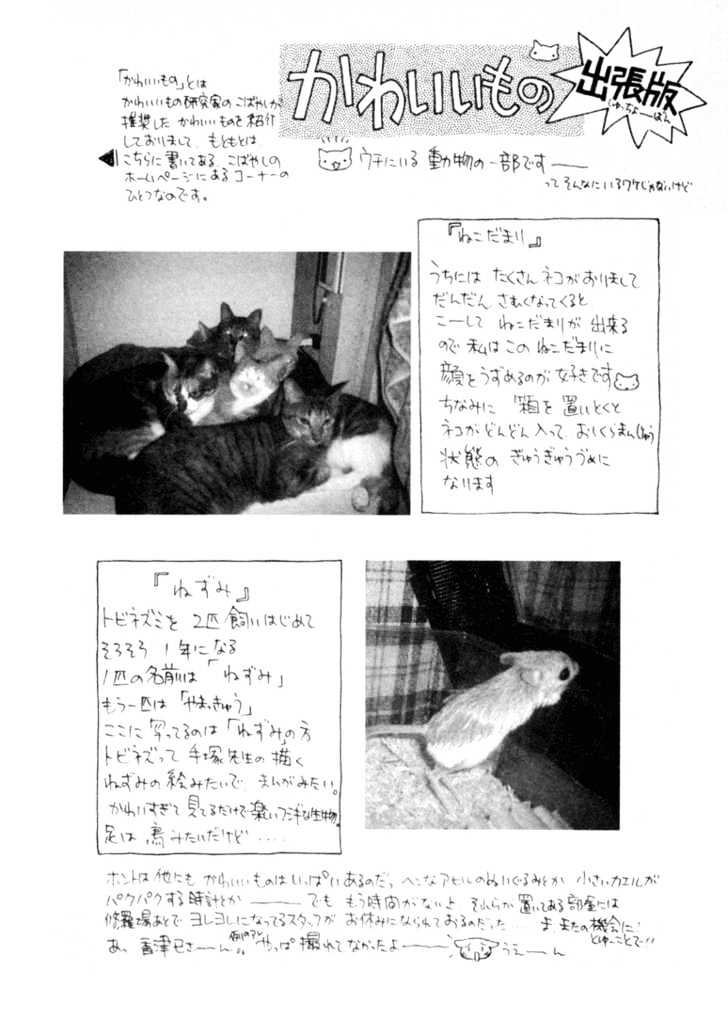 かわいいもの
出張版
しゅっちょーばん
「かわいいもの」とは
かわいいもの研究家のこばやしが
推奨した かわいいものを紹介
しておりまして、もともとは、
こちらに書いてある、こばやしの
ホームページにあるコーナーの
ひとつなのです。
ウチにいる動物の一部です——
ってそんなにいるワケじゃないけど
『ねこだまり』
うちには たくさん ネコがおりまして
だんだん、さむくなってくると
こーして ねこだまりが 出来る
ので 私は この ねこだまりに
顔をうずめるのが 好きです
ちなみに 箱を 置いとくと
ネコが どんどん 入って、おしくらまんじゅう
状態の ぎゅうぎゅうづめに
なります
『ねずみ』
トビネズミを 2匹 飼いはじめて
そろそろ 1年になる
1匹の名前は「ねずみ」
もう一匹は「やまっきゅう」
ここに写ってるのは「ねずみ」の方
トビネズって 手塚先生の描く
ねずみの絵みたいで、まんがみたい。
かわいすぎて 見てるだけで楽しいフシギな生物。
足は 鳥みたいだけど・・・・
ホントは他にも かわいいものは いっぱいあるのだっ、ヘンなアヒルのぬいぐるみとか 小さいカエルが
パクパクする時計とか——— でも もう時間がないよ それらが置いてある部屋には
修羅場あとで ヨレヨレになってるスタッフが お休みになられておるのだった…ま、またの機会に!
とゆーことで!!
あっ、 さーん、例のアレ やっぱ 撮れてなかったよ——— うえーん